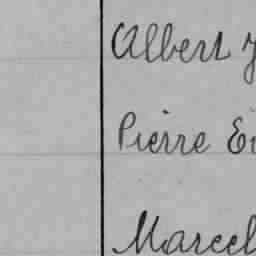 Albert
Pierre
Marcel